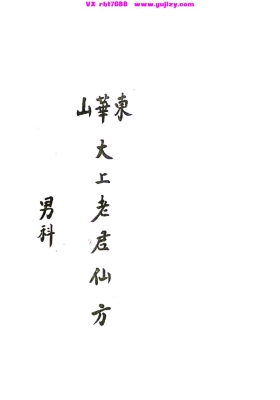 VX rbt7688 www.gujizy.com
東華山
大上老君仙方
男科